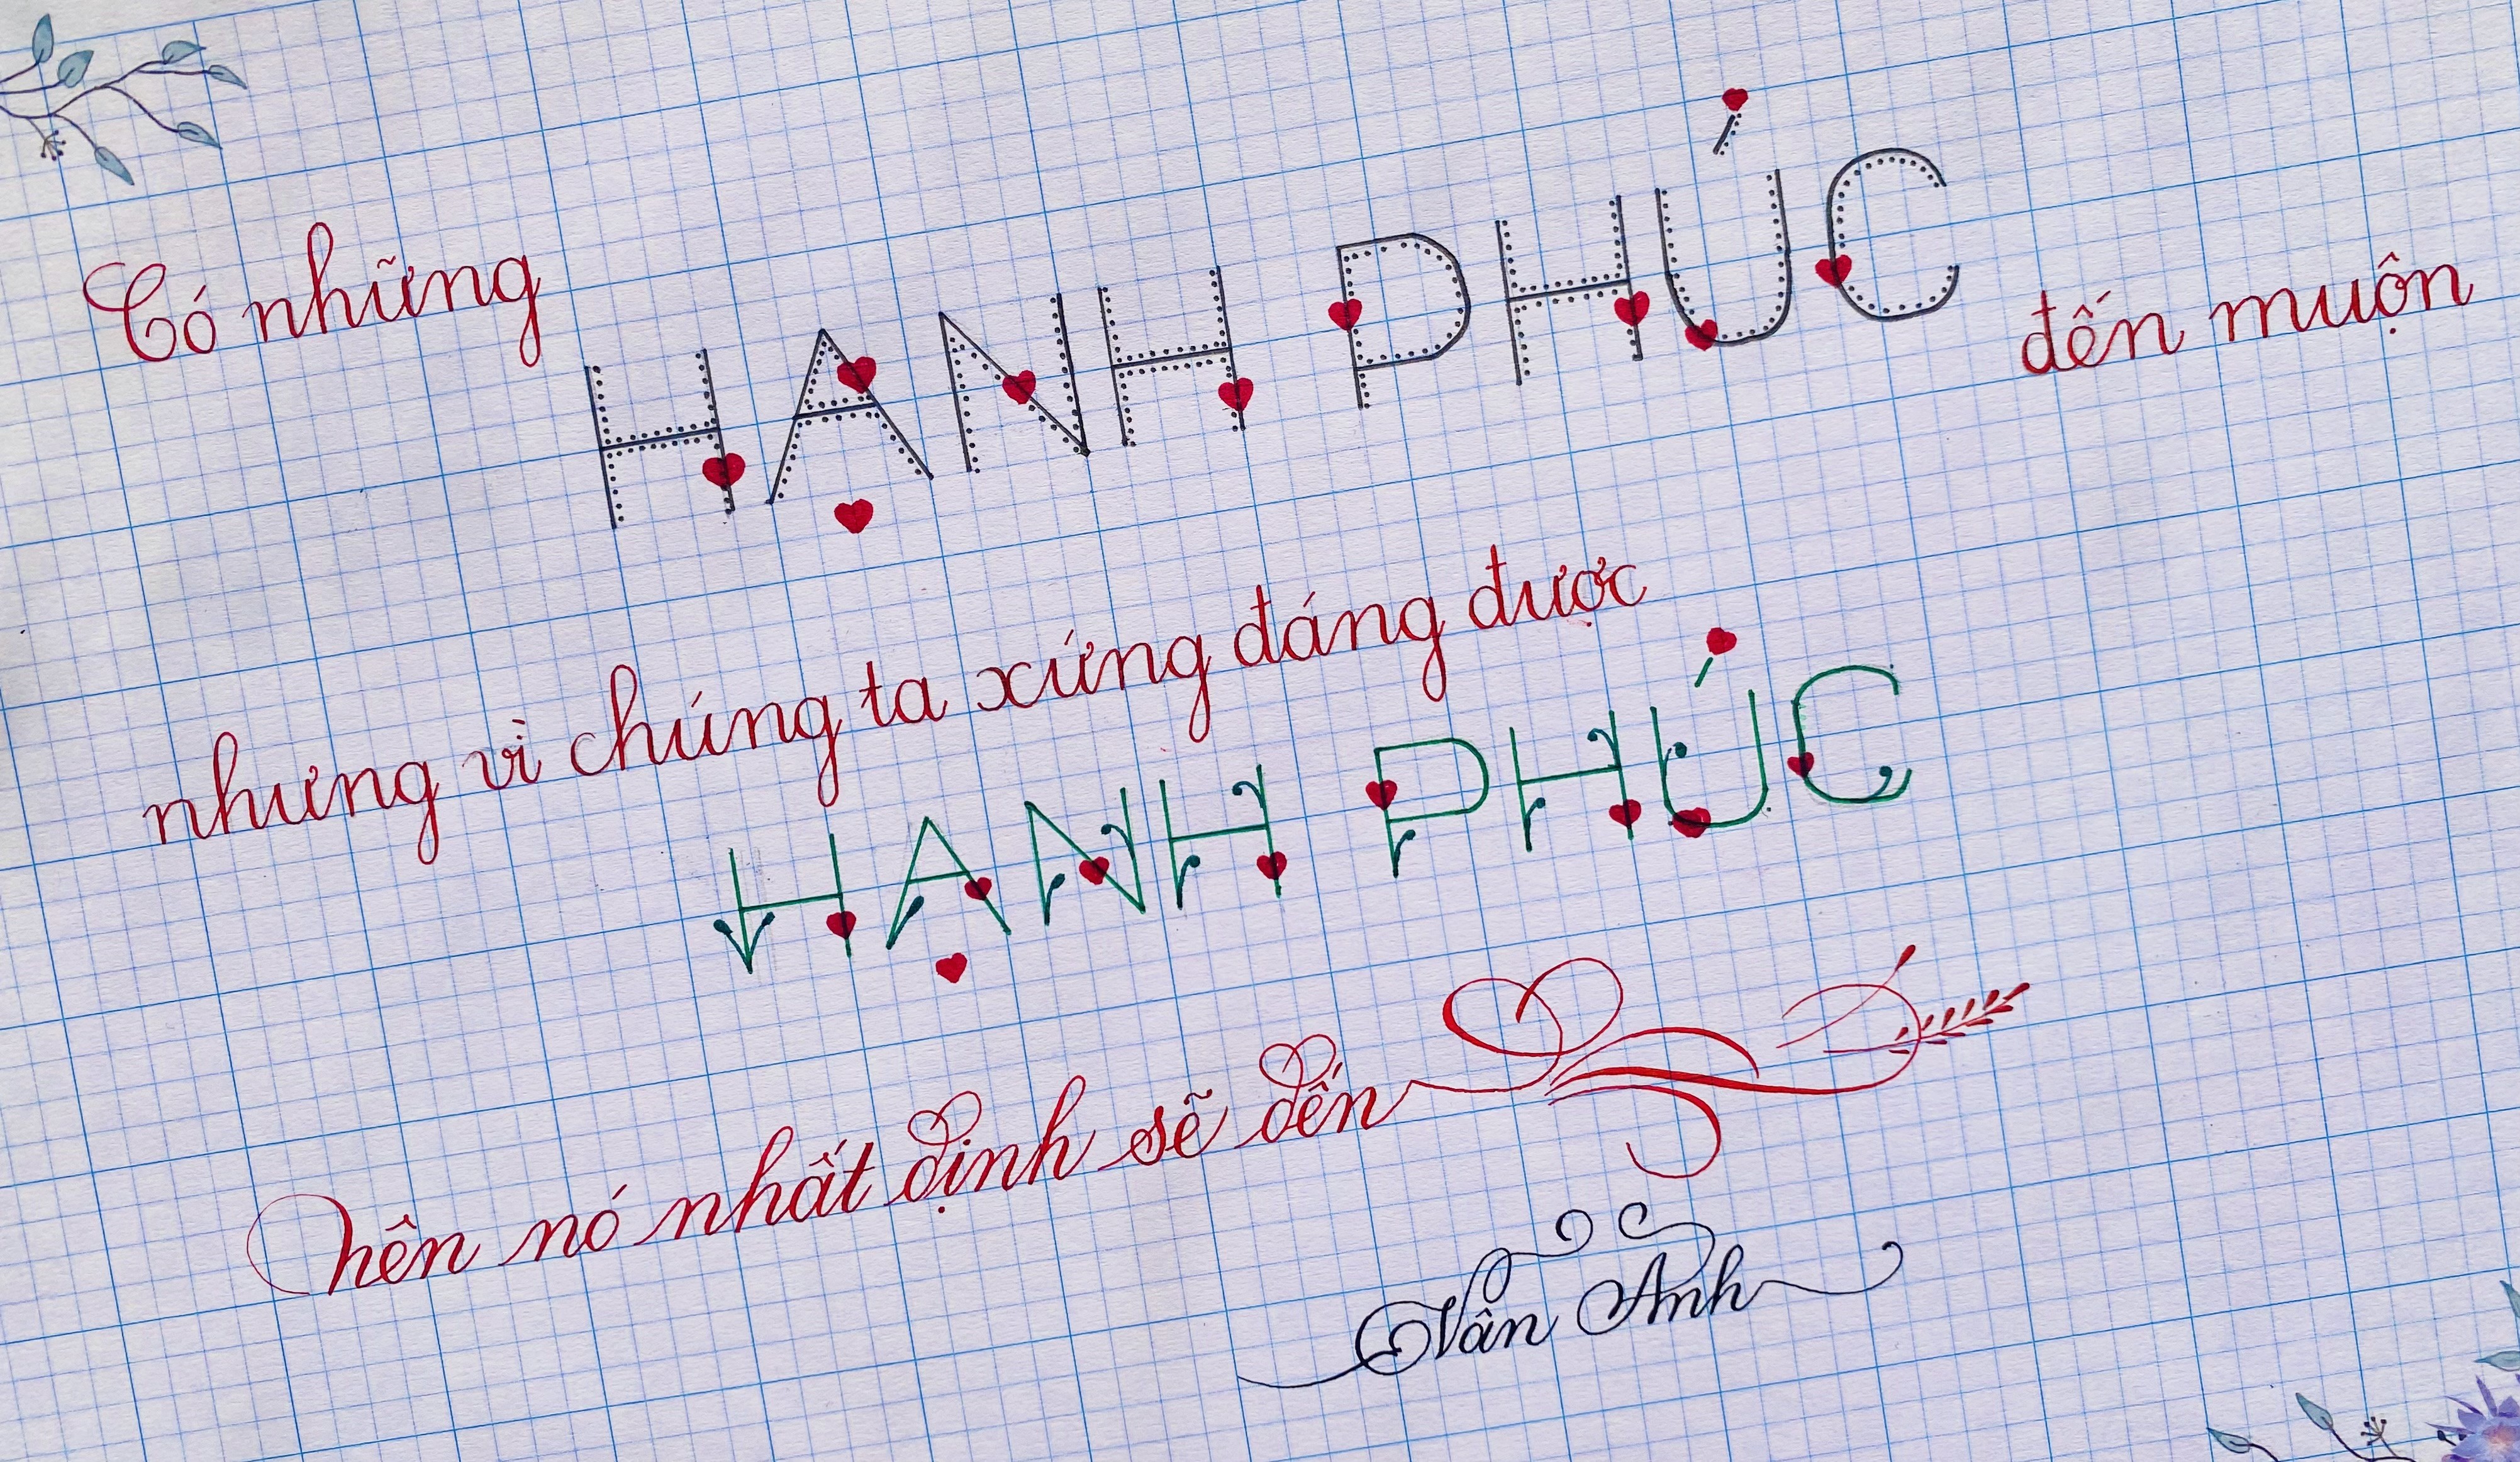 Có những HẠNH PHÚC đến muộn
nhưng vì chúng ta xứng đáng được
HẠNH PHÚC
nên nó nhất định sẽ đến
Vân Anh